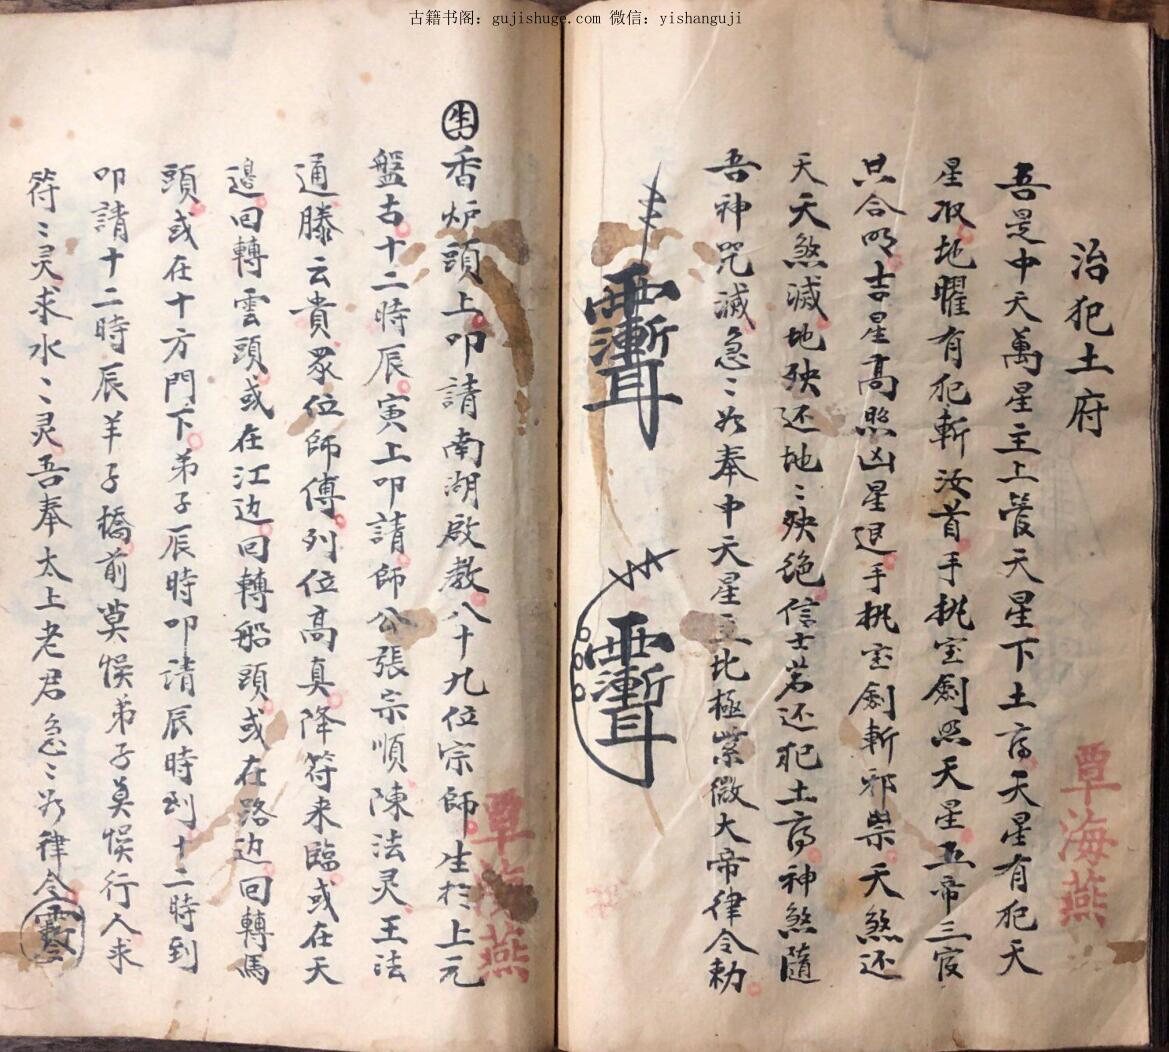 古籍书阁：gujishuge.com 微信：yishanguji
治犯土府
吾是中天萬星主上管天星下土府天星有犯天
星收地曜有犯斬汝首手執宝劍照天星五帝三官
共合明吉星高照凶星退手執宝劍斬邪祟天煞还
天天煞滅地殃还地〻殃绝信士若还犯土府神煞隨
吾神咒滅急〻如奉中天星主北極紫微大帝律令勅
覃海燕
香炉頭上叩請南湖啟教八十九位宗師生於上元
盤古十二時辰寅上叩請師公張宗順陳法灵王法
通滕云貴眾位師傅列位高真降符来臨或在天
邉回轉雲頭或在江边回轉船頭或在路边回轉馬
頭或在十方門下弟子辰時叩請辰時到十二時到
叩請十二時辰羊子橋前莫悮弟子莫悮行人求
符〻灵求水〻灵吾奉太上老君急〻如律令
覃海燕